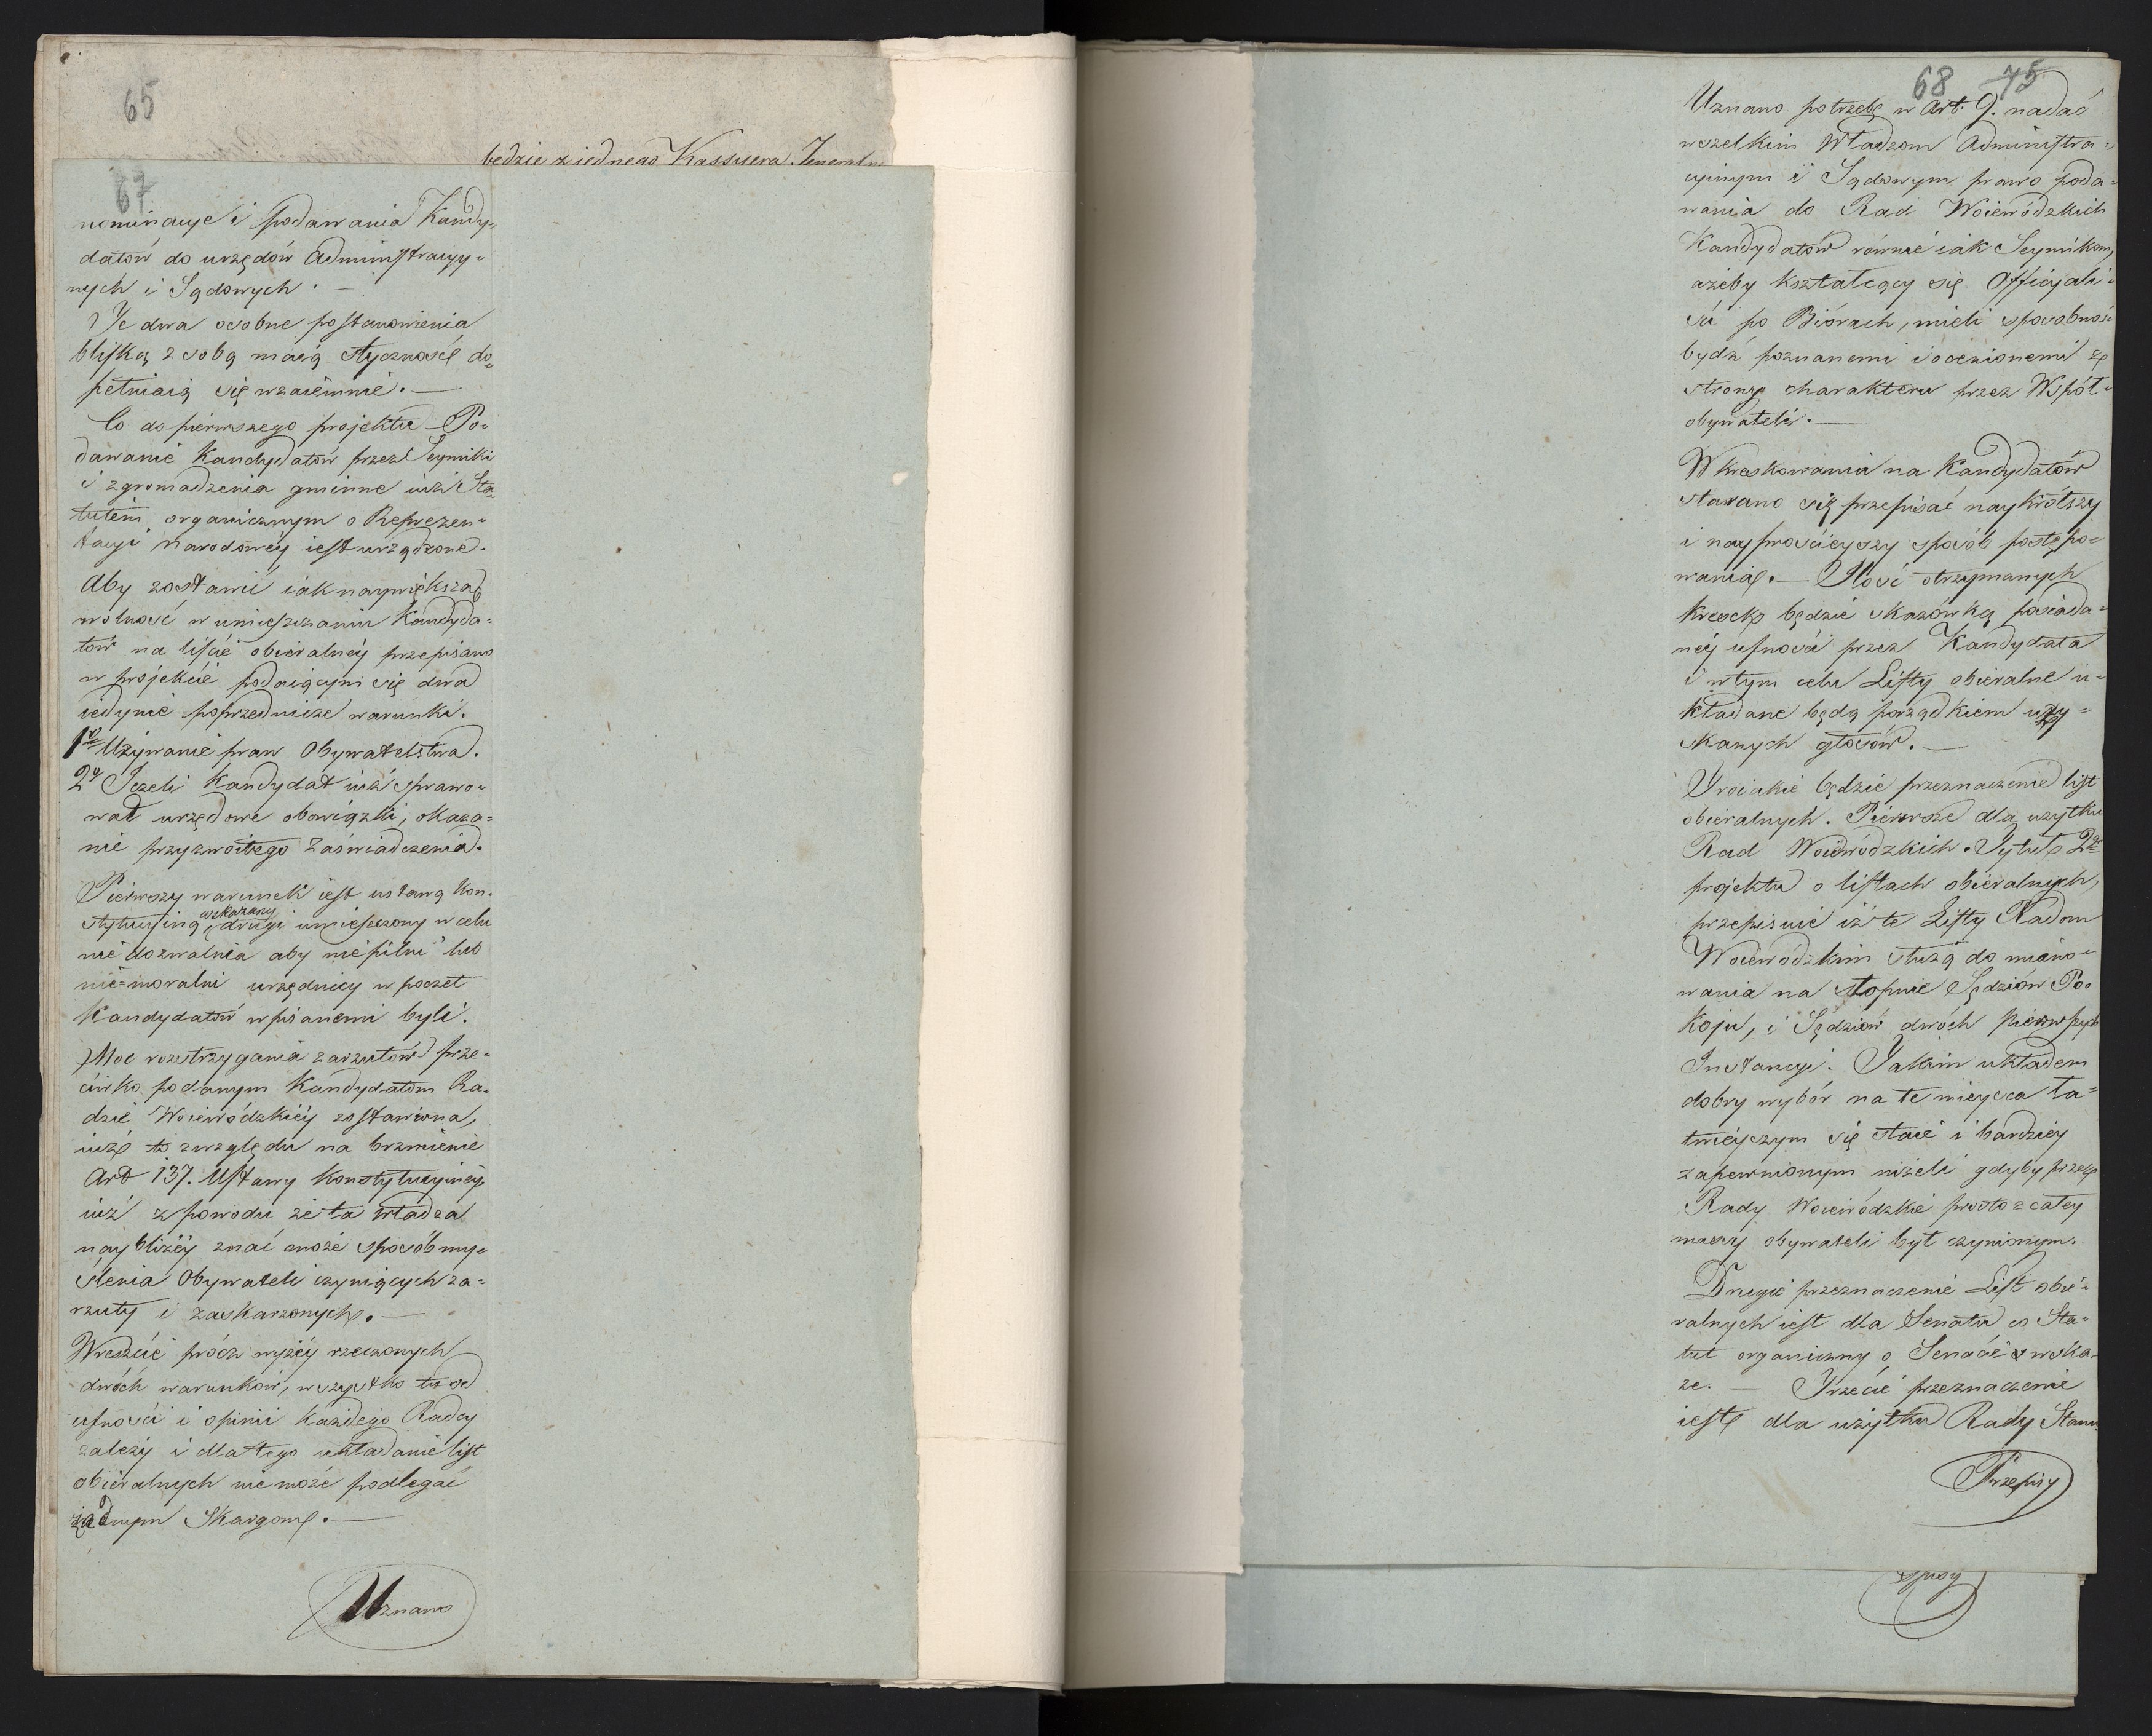 65
będzie z iednego Kassyera Jeneralne
67
nominacye i podawania Kandy=
datów do urzędów Administracyy=
nych i Sądowych. —
Te dwa osobne postanowienia
bliską z sobą maią styczność do=
pełniaią się wzaiemnie. —
Co do pierwszego projektu — Po=
dawanie Kandydatów przez Seymiki
i zgromadzenia gminne iuż Sta=
tutem organicznym o Reprezen=
tacyi Narodowéy iest urządzone.
Aby zostawić iak naywiększą
wolność w umieszczaniu Kandyda=
tów na liście obieralnéy przepisano
w projekcie podaiącym się dwa
iedynie poprzednicze warunki.
1º Używanie praw Obywatelstwa.
2º Jeżeli Kandydat iuż sprawo=
wał urzędowe obowiązki, okaza=
nie przyzwoitego Zaświadczenia.
Pierwszy warunek iest ustawą Kon=
stytucyiną wskazany, drugi umieszczony w celu
nie dozwalnia aby niepilni lub
nie=moralni urzędnicy w poczet
Kandydatów wpisanemi byli.
Moc rozstrzygania zarzutów prze=
ciwko podanym Kandydatom Ra=
dzie Woiewódzkiéy zostawiona,
iuż to względu na brzmienie
Art 137. Ustawy Konstytucyinéy
iuż z powodu że ta władza
naybliżéy znać może sposób my=
ślenia Obywateli czyniących za=
rzuty i zaskarzonych. —
Wreszcie prócz wyżéy rzeczonych
dwóch warunków, wszystko tu od
ufności i opinii każdego Radcy
zależy i dlatego układanie list
obieralnych nie może podlegać
żadnym Skargom. —
Uznano
68 75
Uznano potrzebę w Art. 9. nadać
wszelkim Władzom Administra=
cyinym i Sądowym prawo poda=
wania do Rad Woiewódzkich
Kandydatów równie iak Seymikom,
ażeby kształcący się Officyali=
ści po Biórach, mieli sposobność
bydź poznanemi i ocenionemi ze
strony charakteru przez Współ=
obywateli. —
W kreskowania na Kandydatów
starano się przepisać naykrótszy
i nayprościeyszy sposób postępo=
wania. — Ilość otrzymanych
kresek będzie skazówką posiada=
néy ufności przez Kandydata
i w tym celu Listy obieralne u=
kładane będą porządkiem uzy=
skanych głosów. —
Troiakie będzie przeznaczenie list
obieralnych. Pierwsze dla użytku
Rad Woiewódzkich. Tytuł 2gi
projektu o listach obieralnych,
przepisuie iż te Listy Radom
Woiewódzkim służą do miano=
wania na stopnie Sędziów Po=
koju, i Sędziów dwóch pierwszych
Instancyi. Takim układem
dobry wybór na te mieysca ła=
twieyszym się staie i bardziéy
zapewnionym niżeli gdyby przez
Rady Woiewódzkie prosto z całey
massy obywateli był czynionym.
Drugie przeznaczenie List obie=
ralnych iest dla Senatu co Sta=
tut organiczny o Senacie wska=
że. — Trzecie przeznaczenie
iest dla użytku Rady Stanu
Przepisy